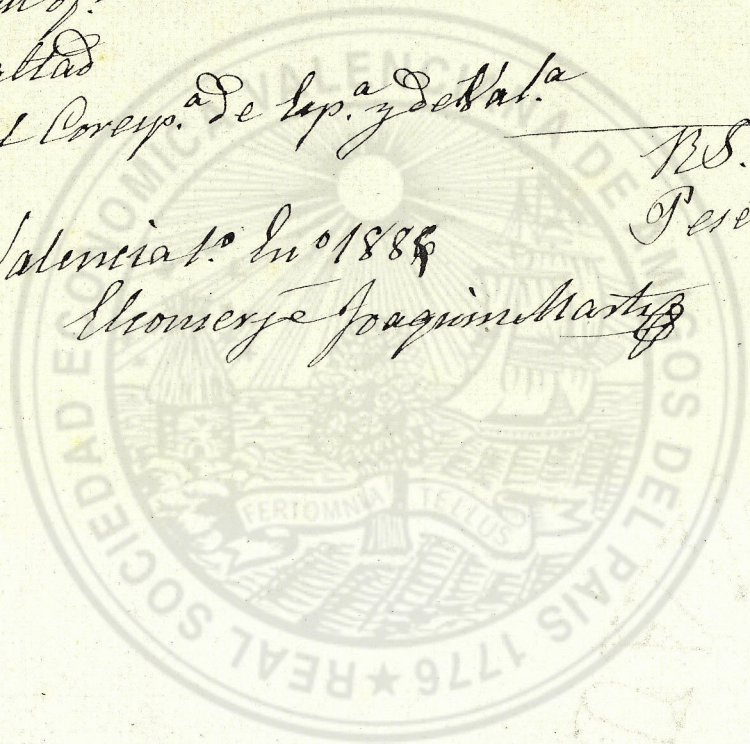 Coresp.ª de Esp.ª y de Val.ª
RS.
Pese
Valencia 1.º En.º 188
El conserje Joaquin Marti
REAL SOCIEDAD ECONOMICA VALENCIANA DE AMIGOS DEL PAIS 1776
FERT OMNIA TELLUS